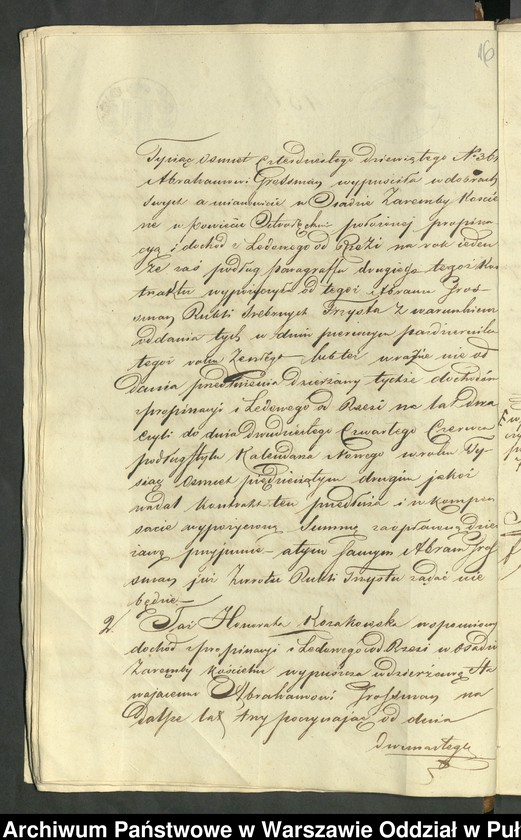 16
Tysiąc Osmset czterdziestego dziewiątego No 36
Abrahamowi Grossman wypuściła w dobrach
swych a mianowicie w Osadzie Zaremby Koście
ne w powiecie Ostrołęckim położonej propina
cyą i dochód z Ledowego od Rzezi na rok ieden
że zaś podług paragrafu drugiego tegoż Kon
traktu wypożyczyła od tegoż Abrama Gros
sman Rubli Srebrnych Trzysta z warunkiem
oddania tych w dniu pierwszym październik
tegoż roku lubteż w razie nie od
dania przedłużenia dzierżawy tychże dochodów
z propinacyi i Ledowego od Rzezi na lat dwa
czyli do dnia dwudziestego Czwartego Czerwca
podług stylu Kalendarza Nowego w roku Ty-
siąc Osmset piędziesiątym drugim jakoż
nadal kontrakt ten przedłuża i w kompen
sacie wypożyczoną Summę za opłaconą dzier
żawę przyjmuie – a tym samym Abram Gros
sman już Zwrotu Rubli Trzystu żądać nie
będzie –
2. Taż Honorata Kossakowska wspomniony
dochód z propinacyi i Ledowego od Rzezi w Osadzie
Zaremby Kościelne wypuszcza w dzierżawę Sta
wającemu Abrahamowi Grossman na
dalsze lat trzy poczynając od dnia
dwunastego
Archiwum Państwowe w Warszawie Oddział w Puł